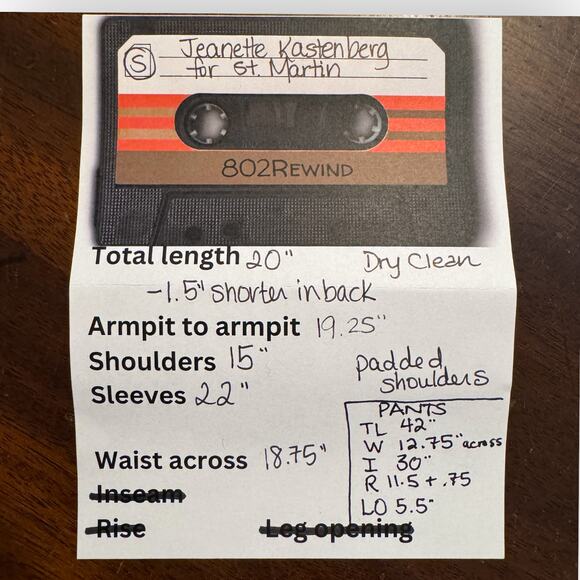 S Jeanette Kastenberg
for St. Martin
802REWIND
Total length 20" Dry Clean
-1.5" shorter in back
Armpit to armpit 19.25"
Shoulders 15"
padded
shoulders
Sleeves 22"
PANTS
TL 42"
W 12.75" across
I 30"
R 11.5 + .75
LO 5.5"
Waist across 18.75"
Inseam
Rise Leg opening